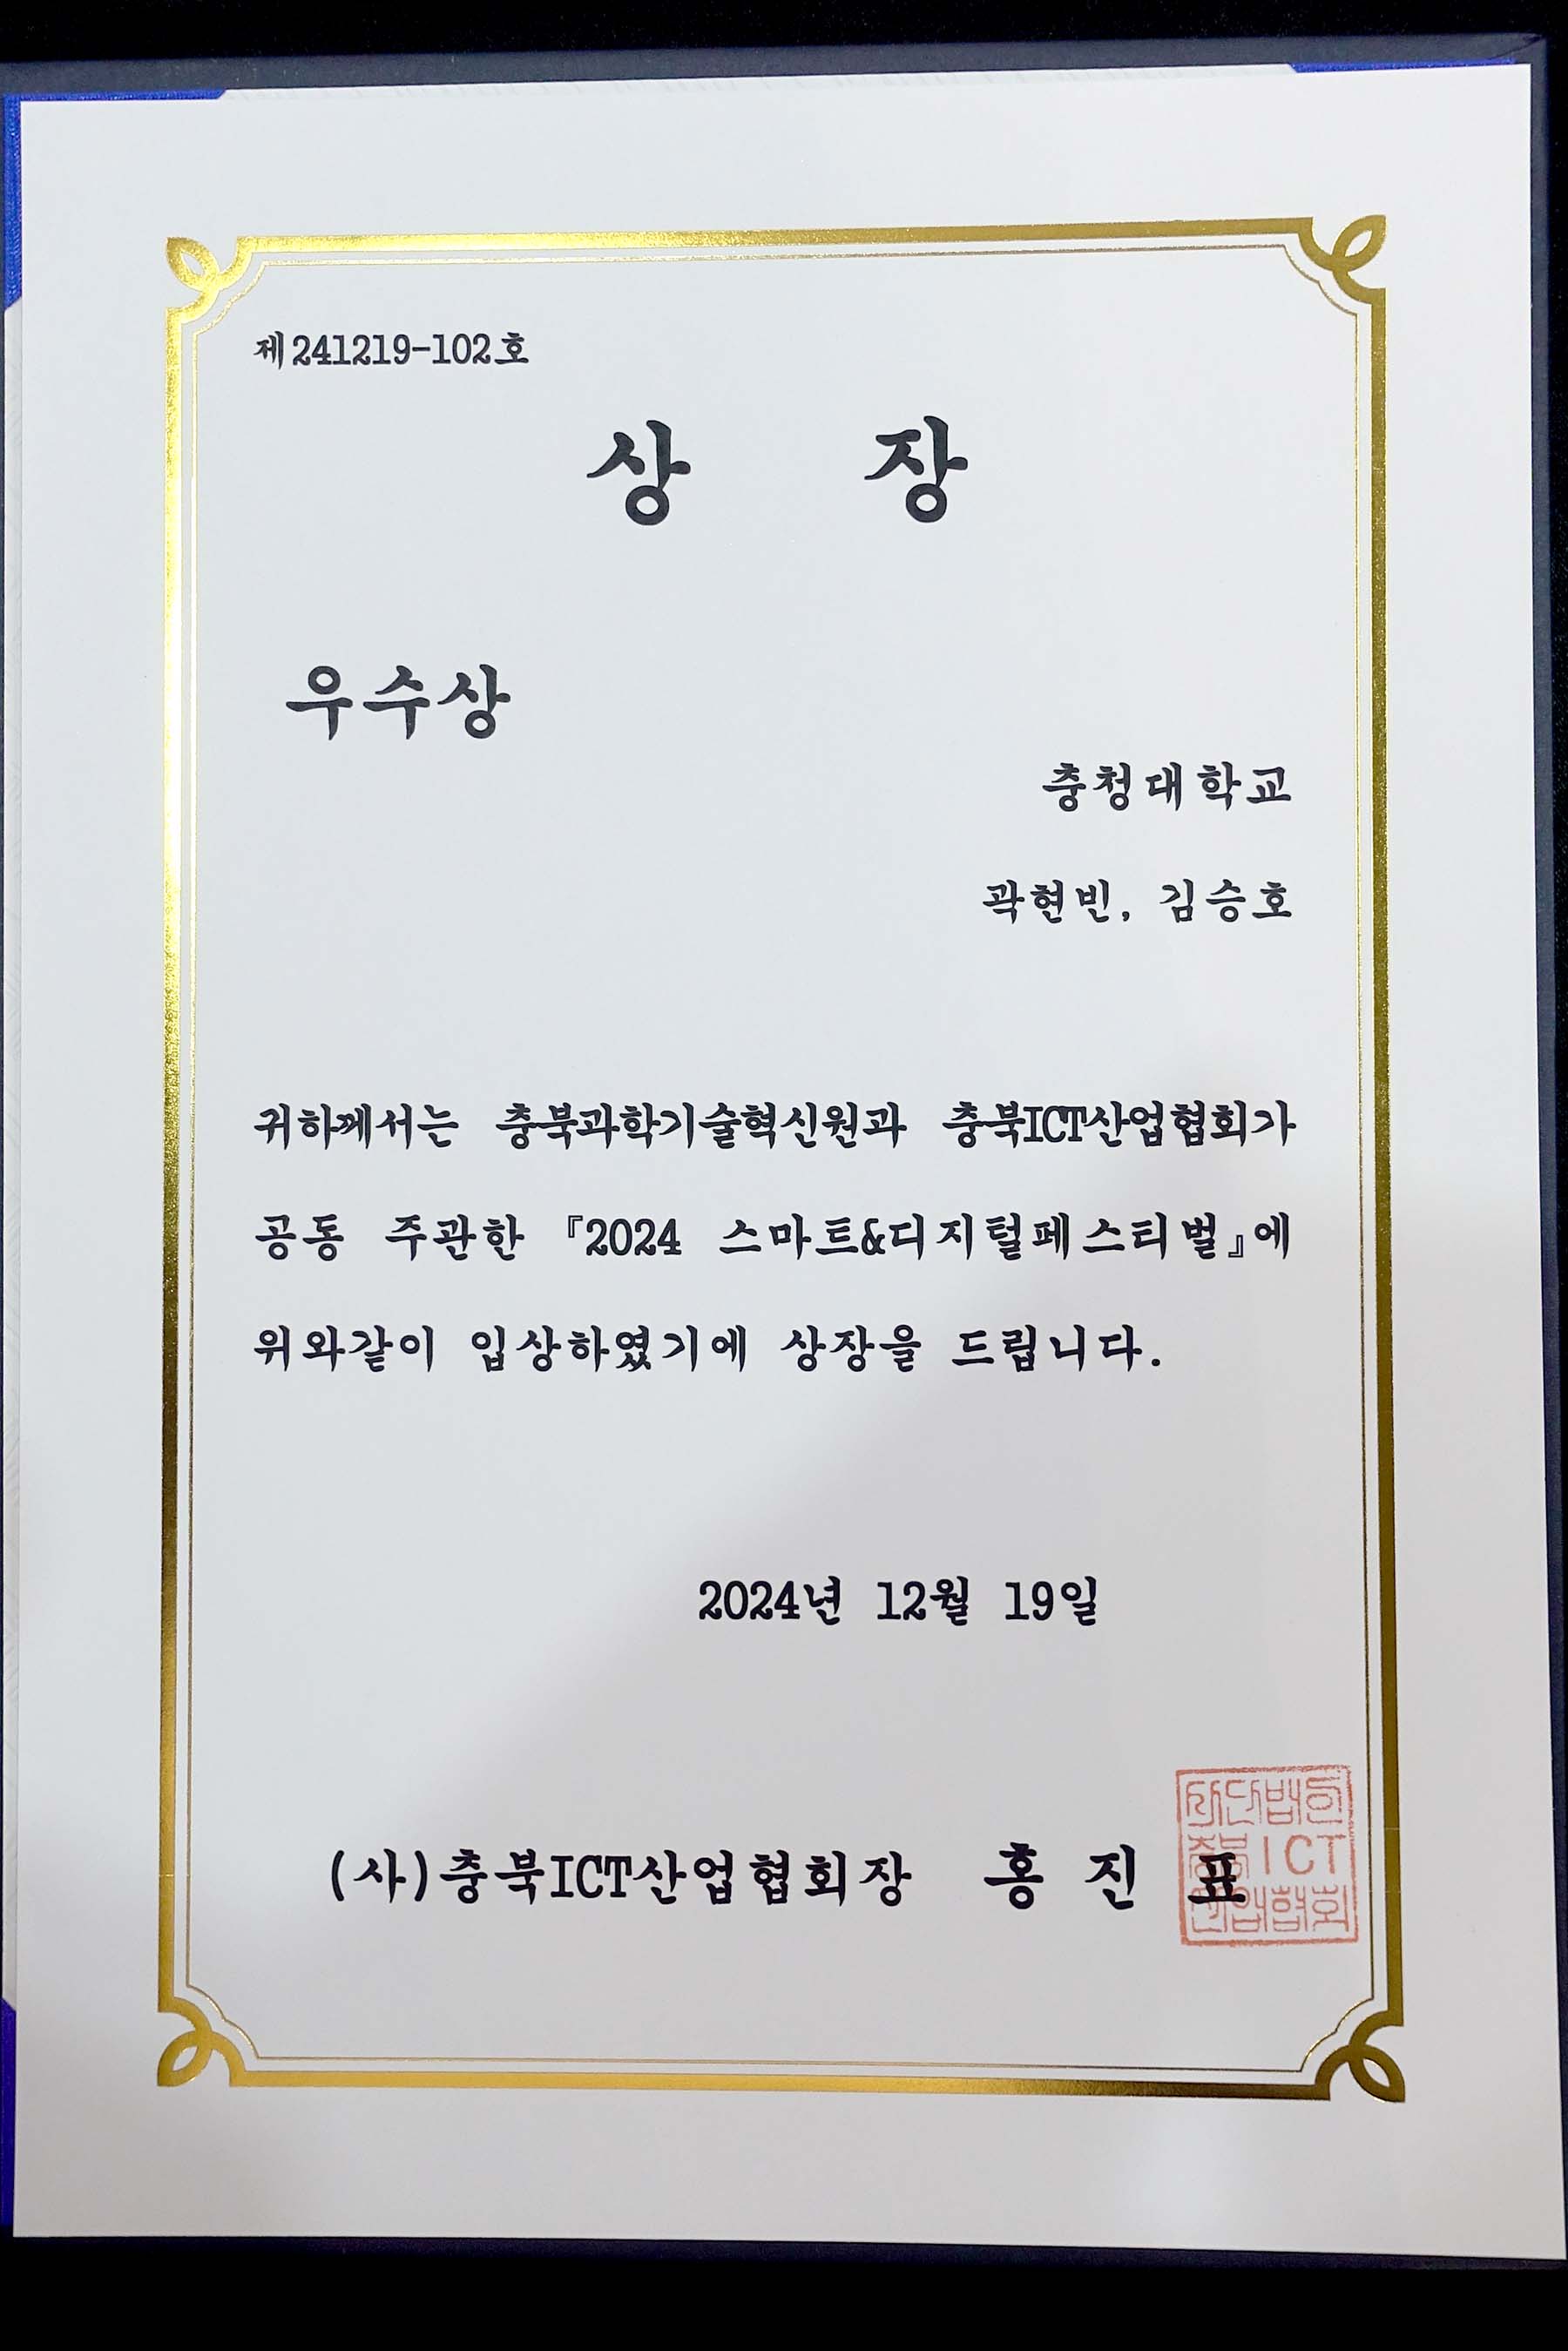 제241219-102호
상 장
우수상
충청대학교
곽현빈, 김승호
귀하께서는 충북과학기술혁신원과 충북ICT산업협회가
공동 주관한 『2024 스마트&디지털페스티벌』에
위와같이 입상하였기에 상장을 드립니다.
2024년 12월 19일
(사)충북ICT산업협회장 홍 진 표
사단법인
충북ICT
산업협회